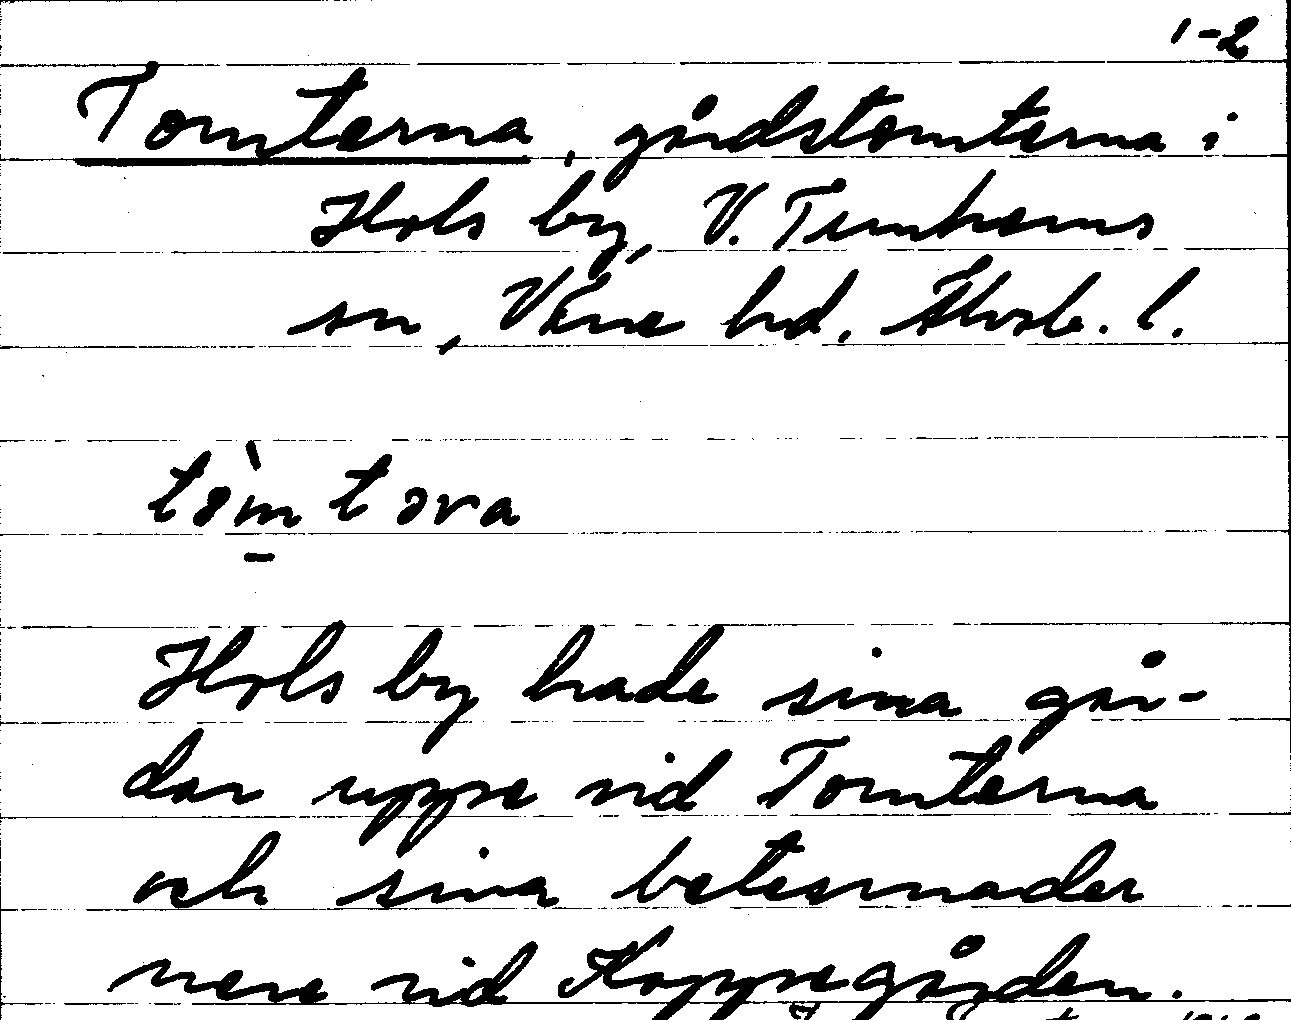 1-2
Tomterna, gårdstomterna i
Hols by, V. Tunhems
sn, Väne hd, Älvsb. l.
tòmtəra
Hols by hade sina går-
dar uppe vid Tomterna
och sina betesmader
nere vid Koppegården.